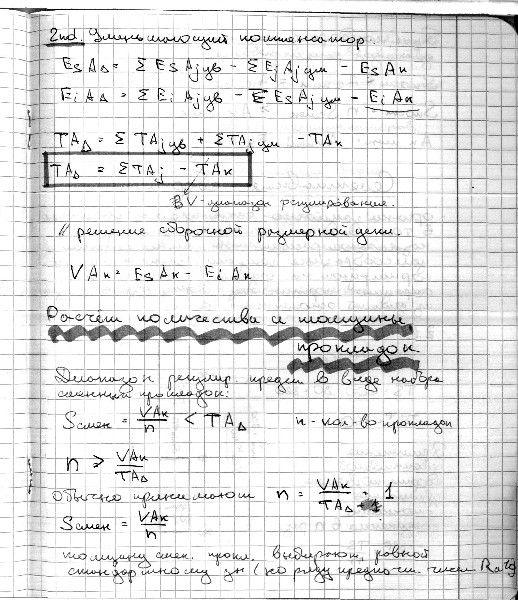 2nd. Уменьшающий компенсатор.
EsA∆ = ΣEsAjув - ΣEjAjум - EsAк
EiA∆ = ΣEiAjув - ΣEsAjум - EiAк
TA∆ = ΣTAjув + ΣTAjум - TAк
TA∆ = ΣTAj - TAк
V-диапазон регулирование.
// решение сборочной размерной цепи.
VAк = EsAк - EiAк
Расчёт количества и толщины
прокладок
Диапазон регулир. предст в виде набора
сменных прокладок:
Sсмен = VAк/n < TA∆ n - кол-во прокладок
n ≥ VAк/TA∆
Обычно принимают n = VAк/TA∆ + 1
Sсмен = VAк/n
толщину смен. прокл. выбирают ровной
стандартному зн (по ряду предпочт. чисел Ra